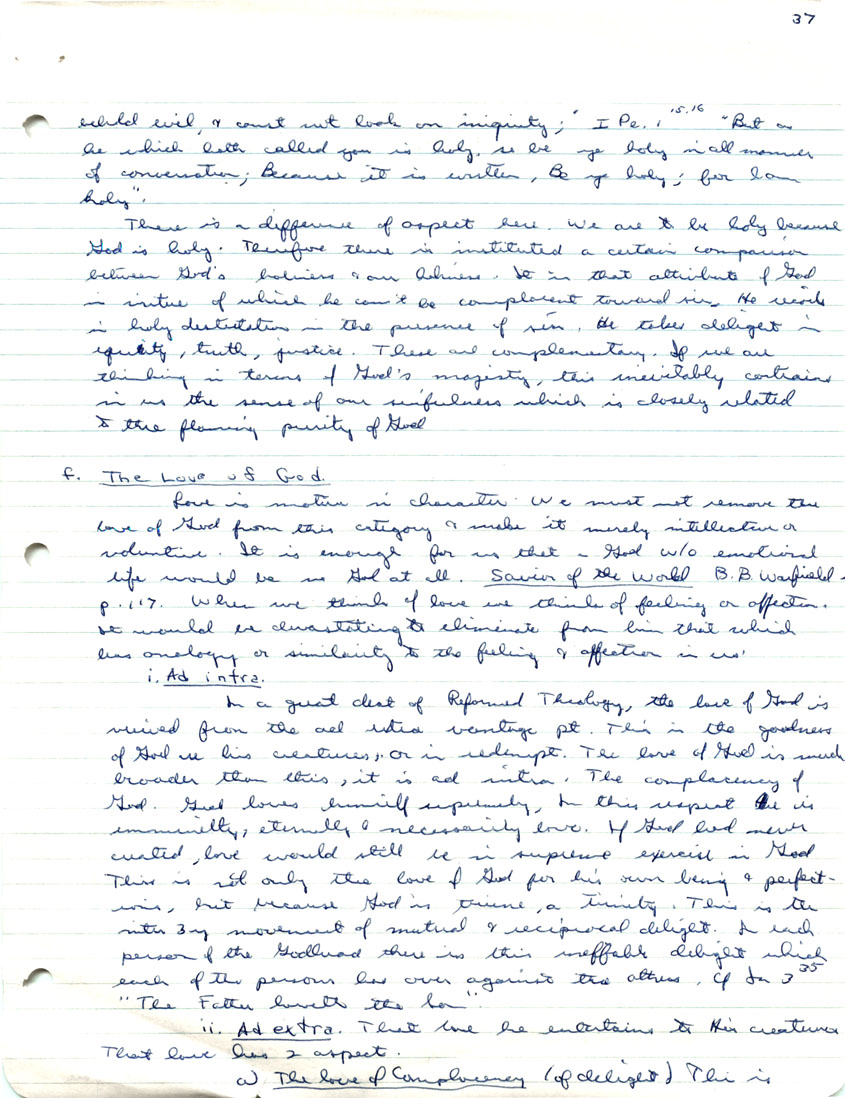 37
behold evil, & canst not look on iniquity;" I Pe. 1 15,16 "But as
he which hath called you is holy, so be ye holy in all manner
of conversation; Because it is written, Be ye holy; for I am
holy".
There is a difference of aspect here. We are to be holy because
God is holy. Therefore there is instituted a certain comparison
between God's holiness & our holiness. It is that attribute of God
in virtue of which he can't be complacent toward sin. He recoils
in holy detestation in the presence of sin. He takes delight in
equity, truth, justice. These are complementary. If we are
thinking in terms of God's majesty, this inevitably contrains
in us the sense of our sinfulness which is closely related
to the flaming purity of God
f. The Love of God.
Love is motive in character. We must not remove the
love of God from this category & make it merely intellective or
voluntive. It is enough for us that a God w/o emotional
life would be no God at all. Savior of the World B.B. Warfield
p. 117. When we think of love we think of feeling or affection.
It would be devastating to eliminate from him that which
has analogy or similarity to the feeling & affection in us.
i. Ad intra.
In a great deal of Reformed Theology, the love of God is
viewed from the ad extra vantage pt. This is the goodness
of God re his creatures, or in redempt. The love of God is much
broader than this, it is ad intra. The complacency of
God. God loves himself supremely, In this respect He is
immanently, eternally & necessarily love. If God had never
created, love would still be in supreme exercise in God
This is not only the love of God for his own being & perfect-
ions, but because God is triune, a trinity. This is the
inter 3y movement of mutual & reciprocal delight. In each
person of the Godhead there is this ineffable delight which
each of the persons has over against the others. Cf Jn 3 35
"The Father loveth the Son".
ii. Ad extra. That love he entertains to His creatures
That love has 2 aspect.
a) The love of Complacency (of delight) This is